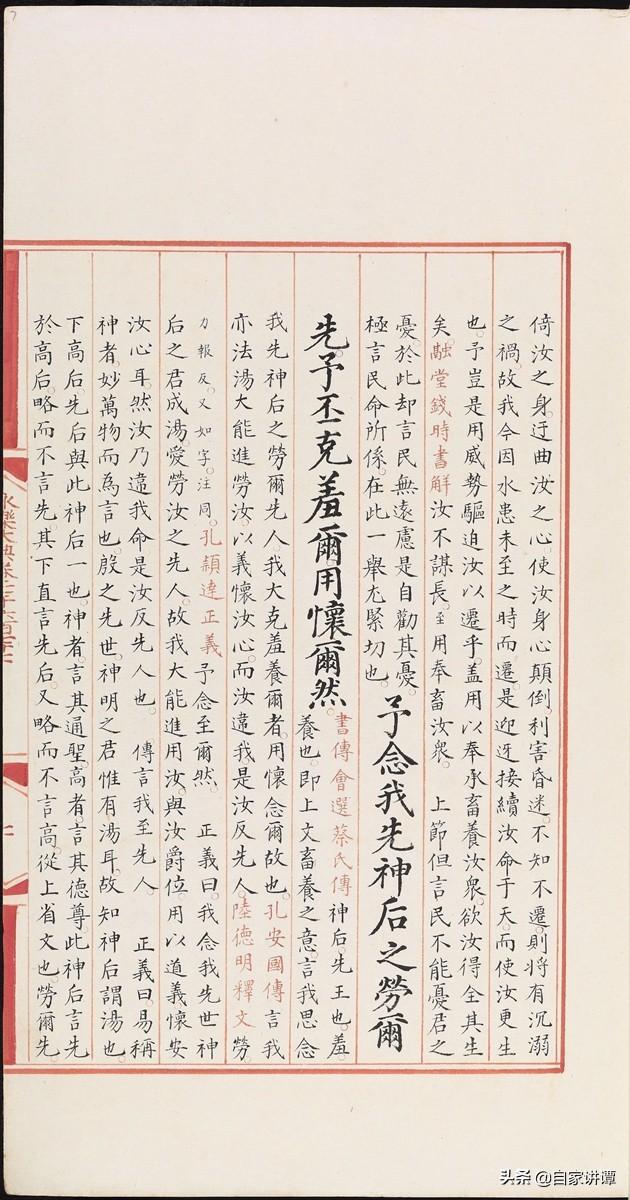 倚汝之身。迂曲汝之心。使汝身心顛倒。利害昏迷。不知不遷。則将有沉溺
之禍。故我今因水患未至之時而遷。是迎迓接續汝命于天。而使汝更生
也。予豈是用威勢驅迫汝以遷乎。蓋用以奉承畜養汝衆。欲汝得全其生
矣。融堂錢時書解汝不謀長。至用奉畜汝衆。 上節但言民不能憂君之
憂。於此却言民無遠慮。是自勸其憂。
極言民命所係。在此一舉。尤緊切也。
予念我先神后之勞爾
先。予丕克羞爾。用懷爾然。
書傳會選蔡氏傳神后。先王也。羞
養也。即上文畜養之意。言我思念
我先神后之勞爾先人。我大克羞養爾者。用懷念爾故也。孔安國傳言我
亦法湯大能進勞汝。以義懷汝心。而汝違我。是汝反先人。陸德明釋文勞。
力報反。又如字。注同。孔頴達正義予念至爾然。 正義曰。我念我先世神
后之君成湯。愛勞汝之先人。故我大能進用汝。與汝爵位。用以道義懷安
汝心耳。然汝乃違我命。是汝反先人也。 傳言我至先人。 正義曰。易稱
神者。妙萬物而為言也。殷之先世。神明之君。惟有湯耳。故知神后謂湯也。
下高后先后。與此神后一也。神者。言其通聖。高者。言其德尊。此神后言先。
於高后。略而不言先。其下直言先后。又略而不言高。從上省文也。勞爾先。
永樂大典卷
头条 @自家讲谭